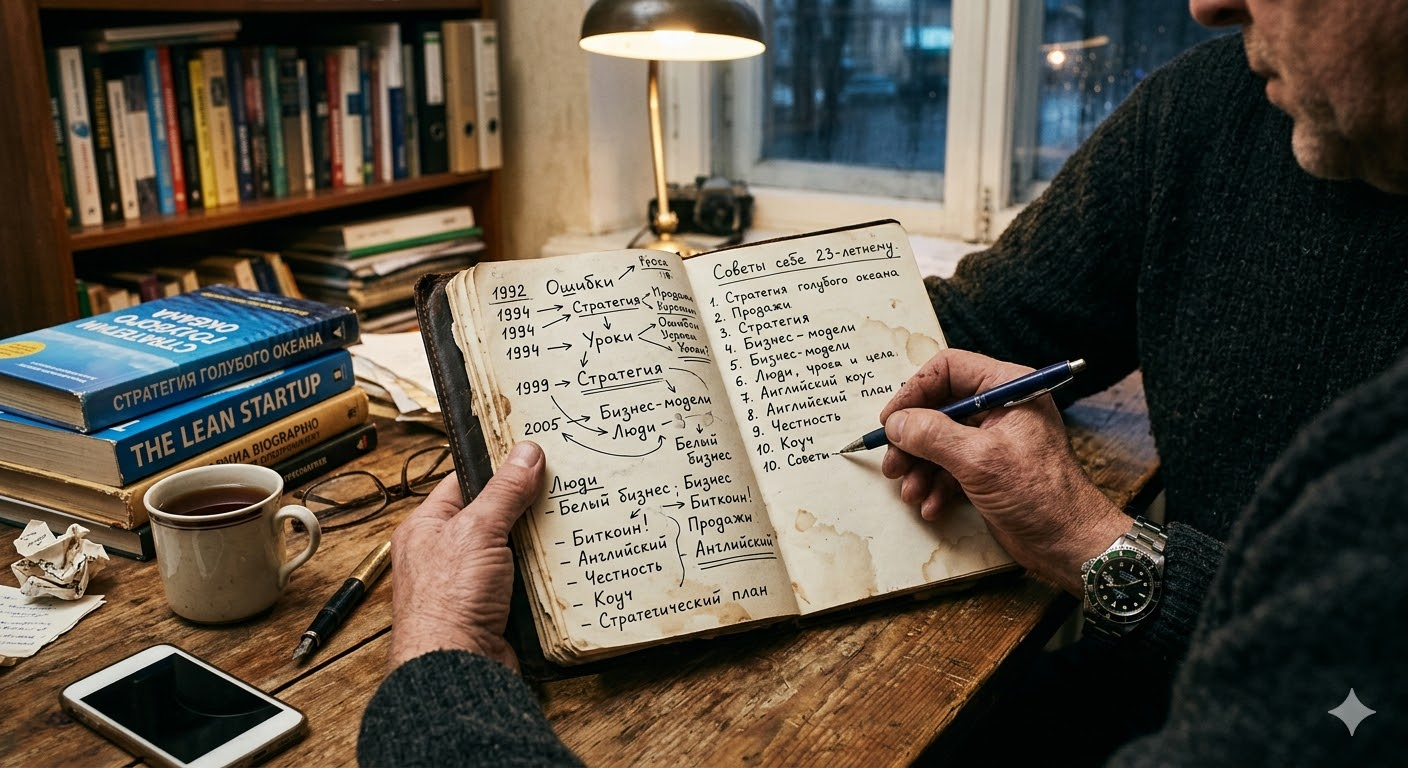 СТРАТЕГИЯ ГОЛУБОГО ОКЕАНА
СТРАТЕГИЯ ГОЛУБОГО ОКЕАНА
THE LEAN STARTUP
BIOGRAPHO
1992 Ошибки
1994 → Стратегия Продажи
1994
1994 → Уроки
1999 → Стратегия
Бизнес-модели
2005 Люди –
Белый
бизнес
Люди
– Белый бизнес; Бизнес
– Биткоин! → Биткоин!
Продажи
– Английский – Английский
– Честность
– Коуч
– Стратегический план
Советы себе 23-летнему.
1. Стратегия голубого океана
2. Продажи
3. Стратегия
4. Бизнес-модели
5. Бизнес-модели
6. Люди, урова и цела.
7. Английский коус
8. Английский план
9. Честность
10. Коуч
10. Советы –